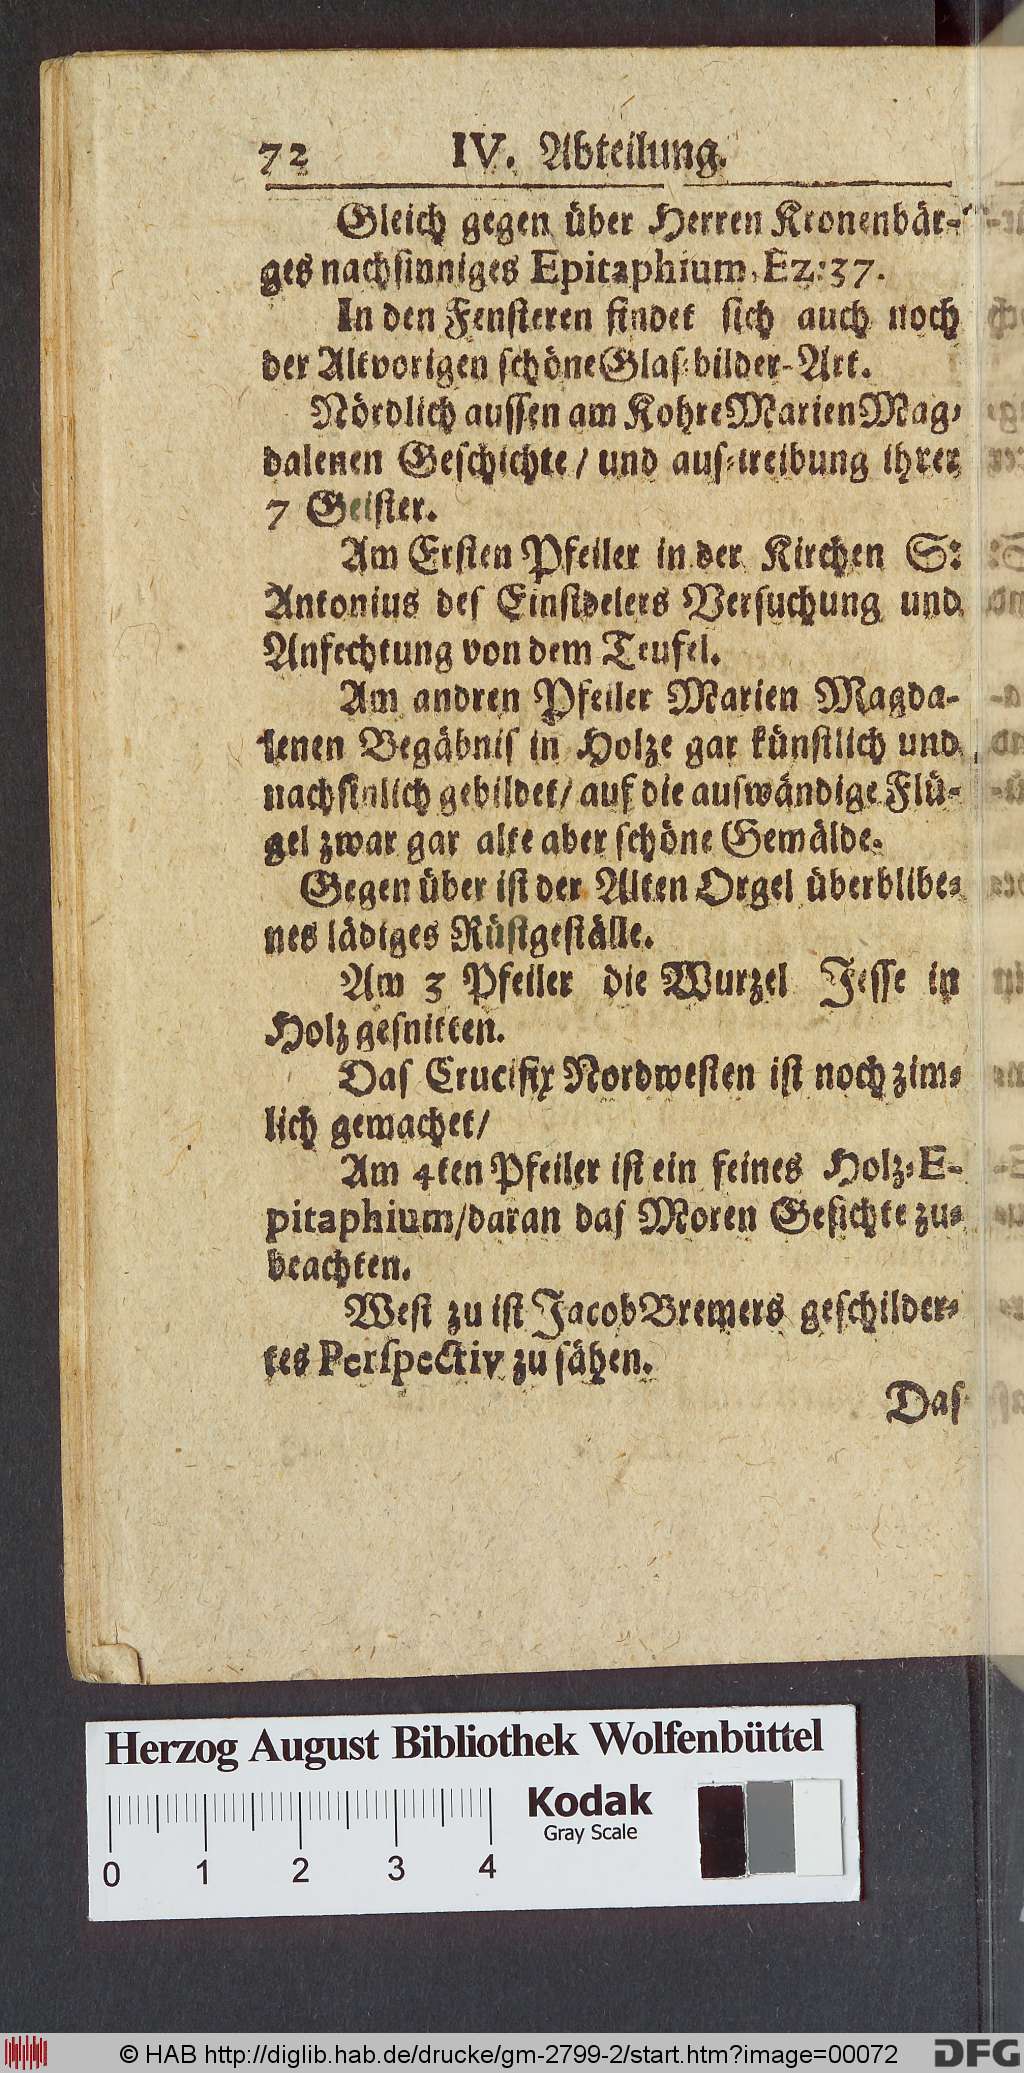 72 IV. Abteilung.
Gleich gegen über Herren Kronenbär-
ges nachsinniges Epitaphium, Ez: 37.
In den Fensteren findet sich auch noch
der Altvorigen schöne Glas-bilder-Art.
Nördlich aussen am Kohre Marien Mag-
dalenen Geschichte / und aus-treibung ihrer
7 Geister.
Am Ersten Pfeiler in der Kirchen S:
Antonius des Einsidelers Versuchung und
Anfechtung von dem Teufel.
Am andren Pfeiler Marien Magda-
lenen Begäbnis in Holze gar künstlich und
nachsinlich gebildet / auf die auswändige Flü-
gel zwar gar alte aber schöne Gemälde.
Gegen über ist der Alten Orgel überblibe-
nes lädiges Rüstgeställe.
Am 3 Pfeiler die Wurzel Jesse in
Holz gesnitten.
Das Crucifix Nordwesten ist noch zim-
lich gemachet /
Am 4ten Pfeiler ist ein feines Holz-E-
pitaphium / daran das Moren Gesichte zu-
beachten.
West zu ist Jacob Bremers geschilder-
tes Perspectiv zu sähen.
Das
Herzog August Bibliothek Wolfenbüttel
Kodak
Gray Scale
0 1 2 3 4
© HAB http://diglib.hab.de/drucke/gm-2799-2/start.htm?image=00072
DFG